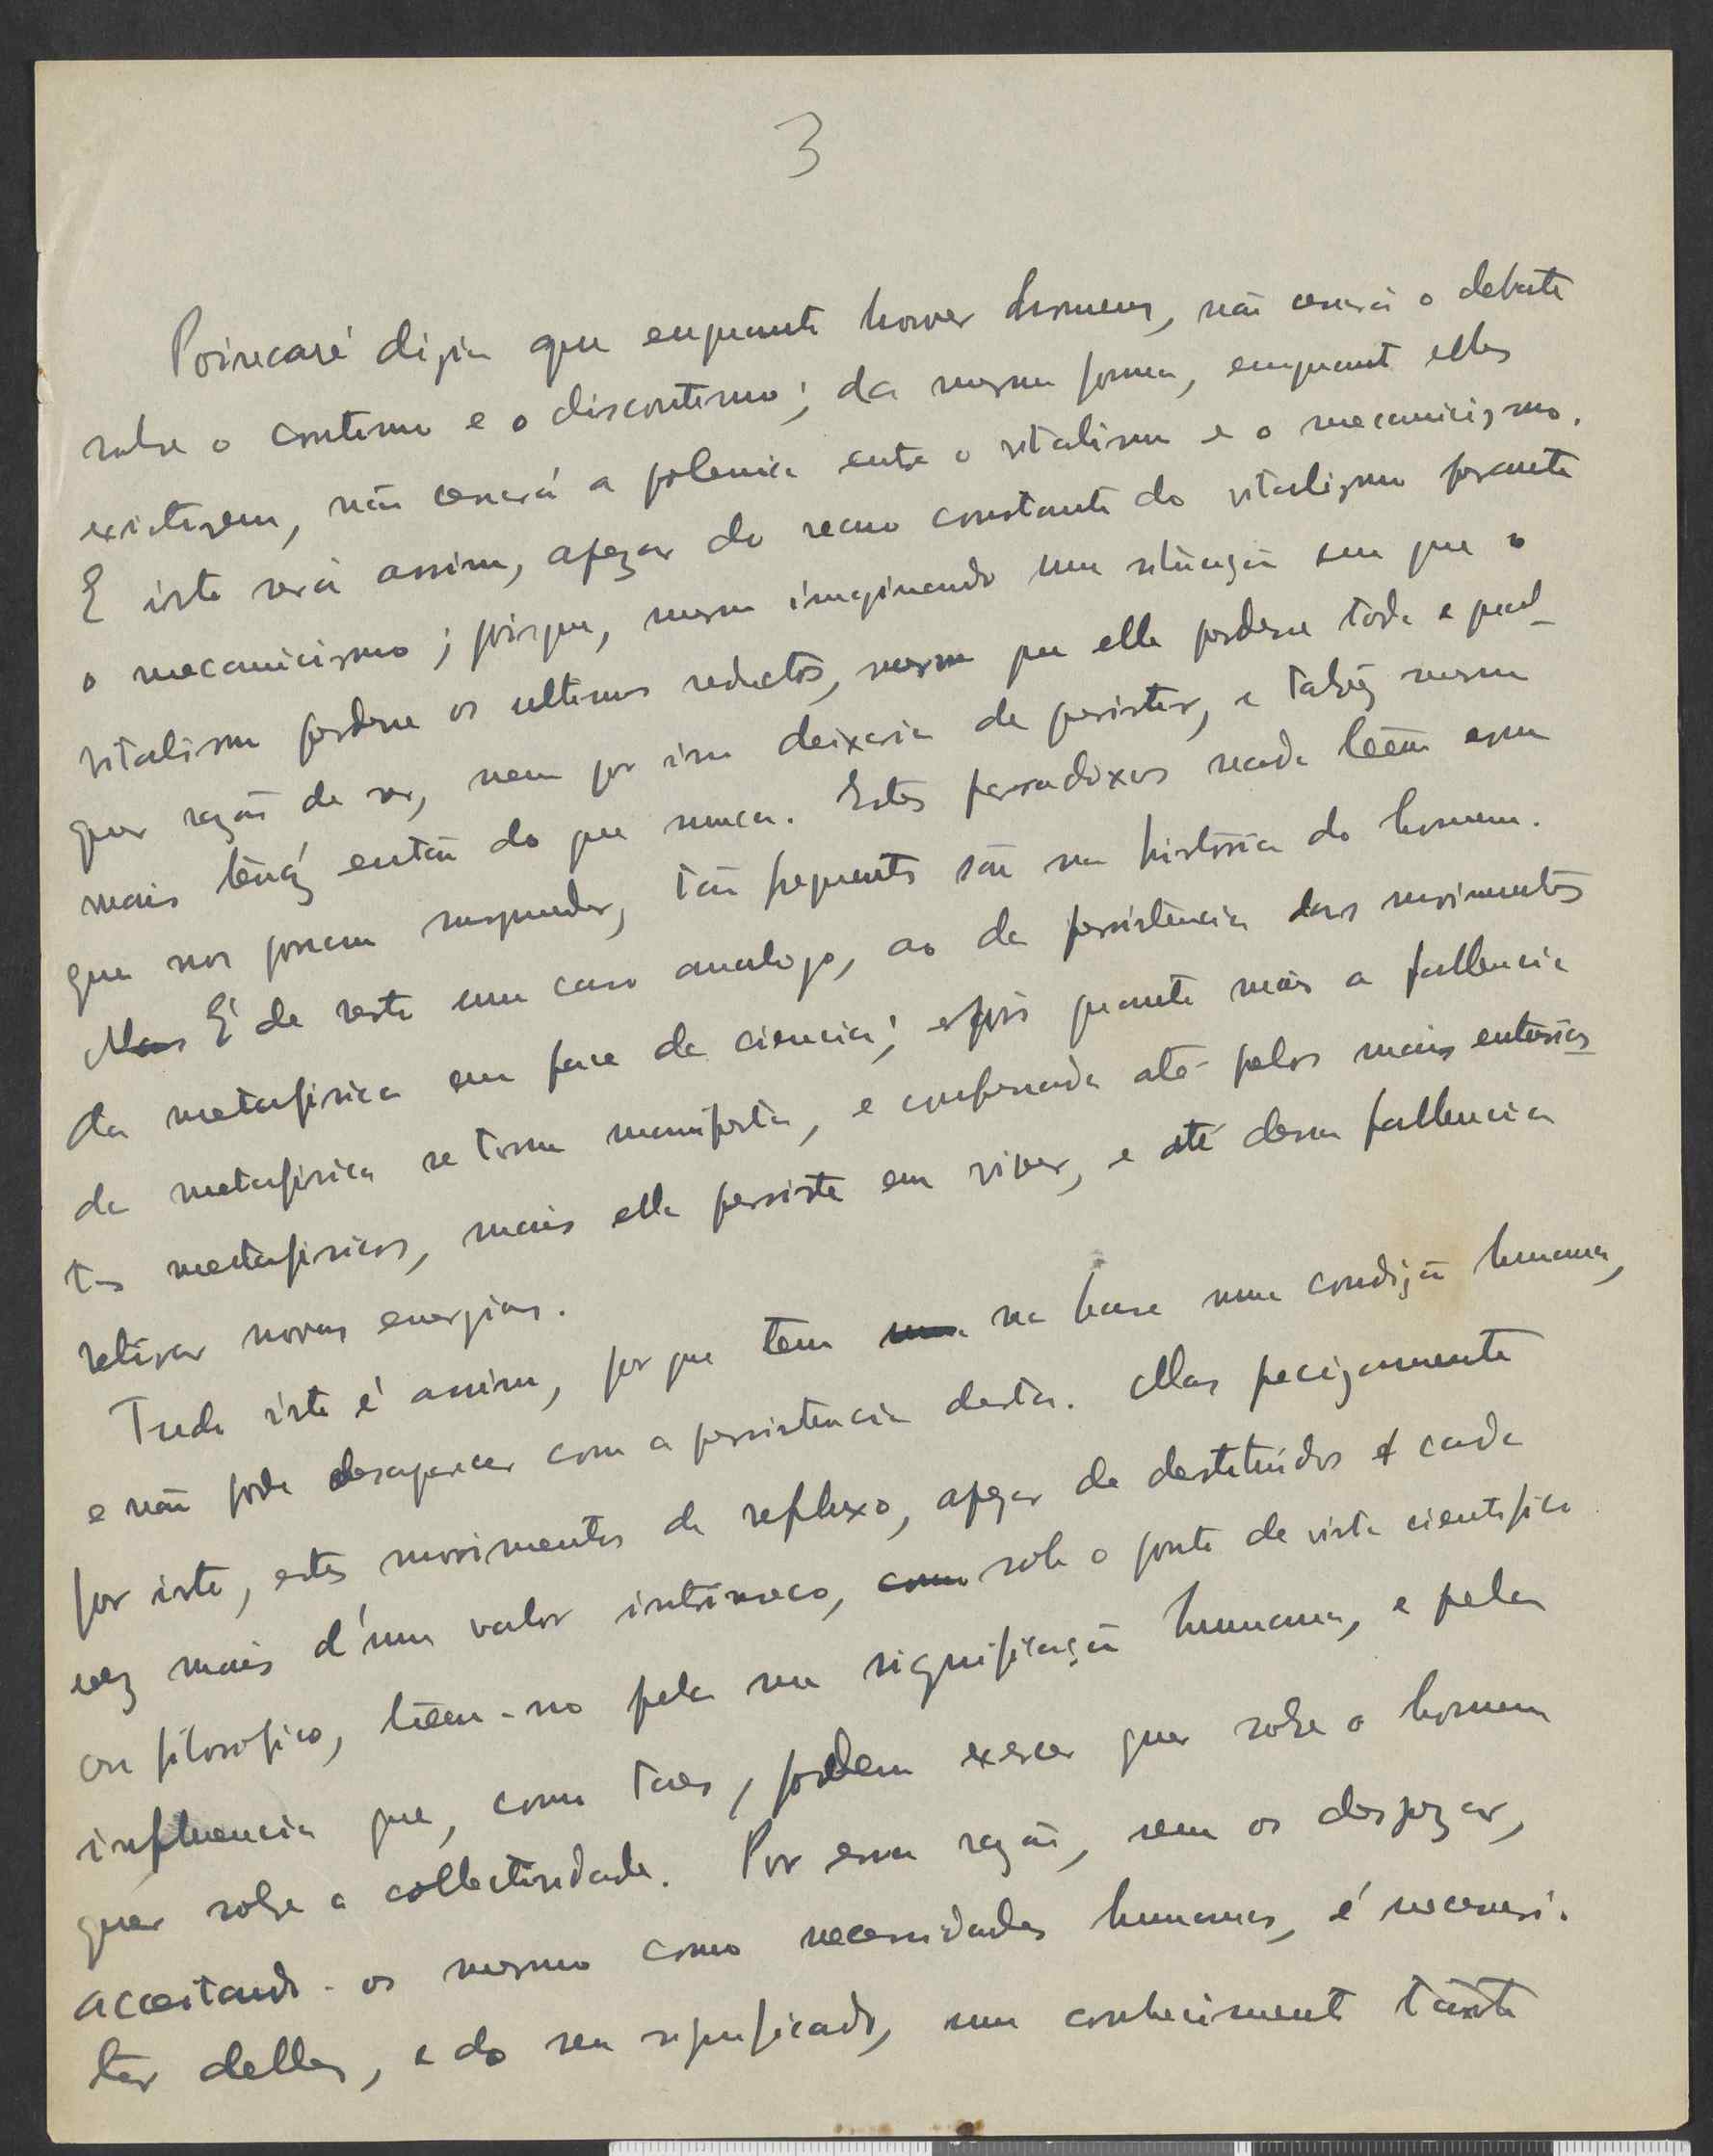 3
Poincaré dizia que enquanto houver homens, não cessará o debate
sobre o continuo e o discontinuo; da mesma forma, emquanto elles
existirem, não cessará a polemica entre o vitalismo e o mecanicismo.
E isto será assim, apezar do recuo constante do vitalismo perante
o mecanicismo; porque, mesmo imaginando uma situação em que o
vitalismo perdesse os ultimos reductos, mesmo que elle perdesse toda e qual-
quer razão de ser, nem por isso deixaria de persistir, e talvez mesmo
mais tenáz então do que nunca. Estes paradoxos nada teêm com
que nos possam surpreender, tão frequentes são na história do homem.
Mas É de resto um caso analogo, ao da persistencia dos movimentos
da metafisica em face da ciencia; pois quanto mais a fallencia
da metafisica se torna manifesta, e confessada até pelos mais entusias
tas metafisicos, mais ella persiste em viver, e até dessa fallencia
retirar novas energias.
Tudo isto é assim, por que tem uma na base uma condição humana,
e não pode desaparecer com a persistencia desta. Mas precizamente
por isto, estes movimentos de reflexo, apezar de destituidos cada
vez mais d'um valor intrinseco, como sob o ponto de vista cientifico
ou filosofico, têem-no pela sua significação humana, e pela
influencia que, como taes, podem exercer quer sobre o homem
quer sobre a collectividade. Por essa razão, sem os desprezar,
acceitando-os mesmo como necessidades humanas, é necessario
ter delles, e do seu significado, um conhecimento tanto